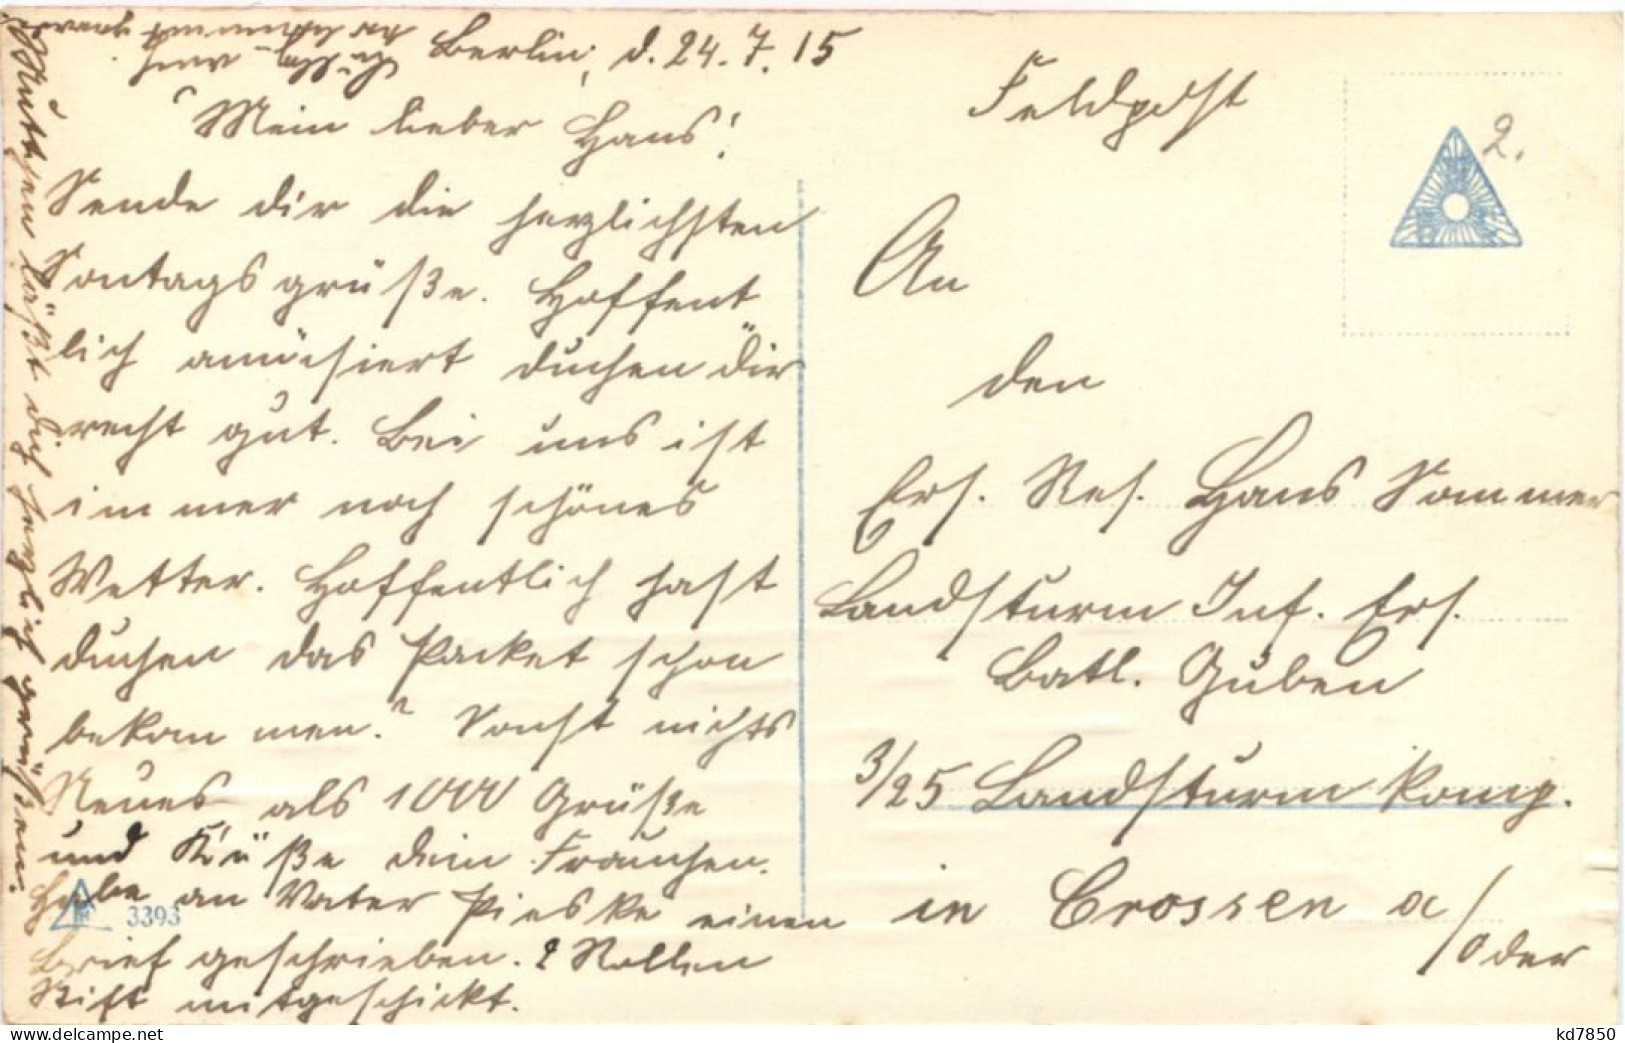 Berlin, d. 24.7.15
Mein lieber Hans!
Sende dir die herzlichsten
Sontagsgrüße. Hoffent
lich amüsiert duchen dir
recht gut. Bei uns ist
immer noch schönes
Wetter. Hoffentlich hast
duchen das Packet schon
bekommen? Sonst nichts
Neues als 1000 Grüße
und Küße dein Frauchen.
Habe an Vater Pieske einen
Brief geschrieben. 2 Rollen
Stift mitgeschickt.
läßt dich herzlich grüßen.
Feldpost
2.
An
den
Ers. Res. Hans Sommer
Landsturm Inf. Ers.
Batl. Guben
3/25 Landsturm Komp.
in Crossen a/Oder
3393
www.delcampe.net
kd7850